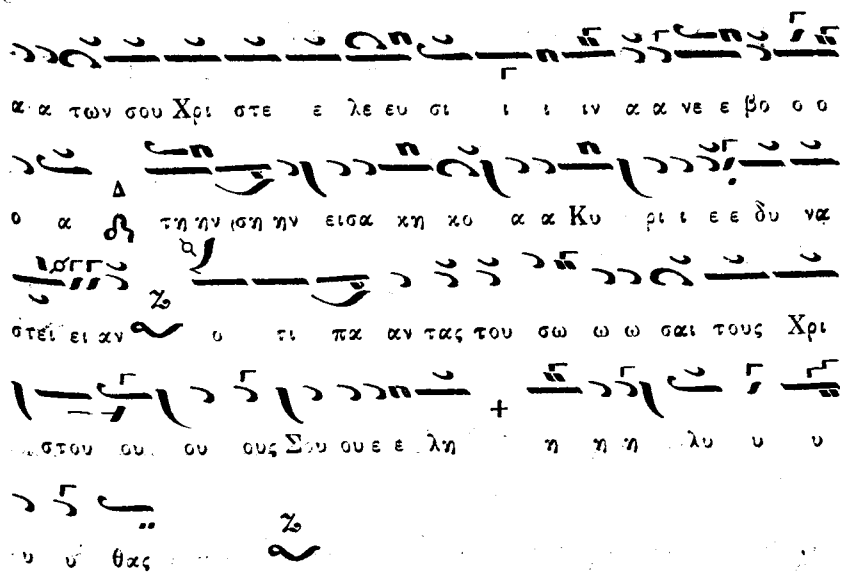 α α των σου Χρι στε ε λε ευ σι ι ι ιν α α νε ε βο ο ο
ο α Δ τη ην ση ην εισα κη κο α α Κυ ρι ι ε ε δυ να
στει ει αν Ζ ο τι πα αν τας του σω ω ω σαι τους Χρι
στου ου ου ους Σου ου ε ε λη η η η λυ υ υ
υ υ θας Ζ